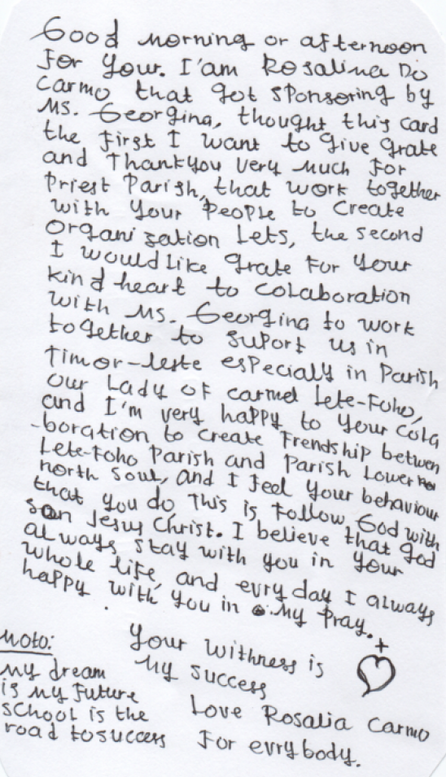 Good morning or afternoon
For your. I'am Rosalina Do
Carmo that got sponsoring by
Ms. Georgina, thought this card
the first I want to give grate
and Thankyou very much for
Priest Parish, that work together
with Your People to Create
Organization Lets, the second
I would like grate for your
kind heart to colaboration
with Ms. Georgina to work
together to suport us in
Timor-leste especially in Parish
Our Lady of carmel Lete-Foho,
and I'm very happy to your Cola
-boration to create Frendship betwen
Lete-Foho Parish and Parish Lower
north Soul, and I feel Your behaviour
that you do This is Follow God with
son Jesus Christ. I believe that God
always stay with you in your
whole life, and evry day I always
happy with you in my Pray.
Your withness is
my success
Love Rosalia Carmo
For evrybody.
Moto:
my dream
is my Future
School is the
road to success